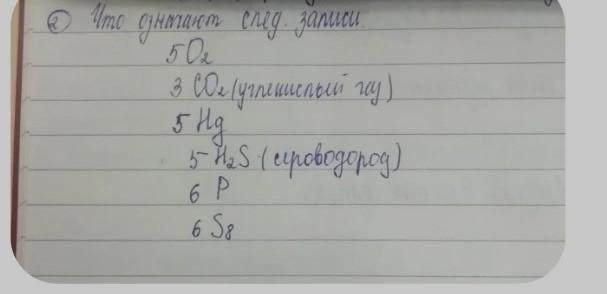 ② Что означают след. записи.
5O₂
3 CO₂ (углекислый газ)
5 Hg
5 H₂S (сероводород)
6 P
6 S₈